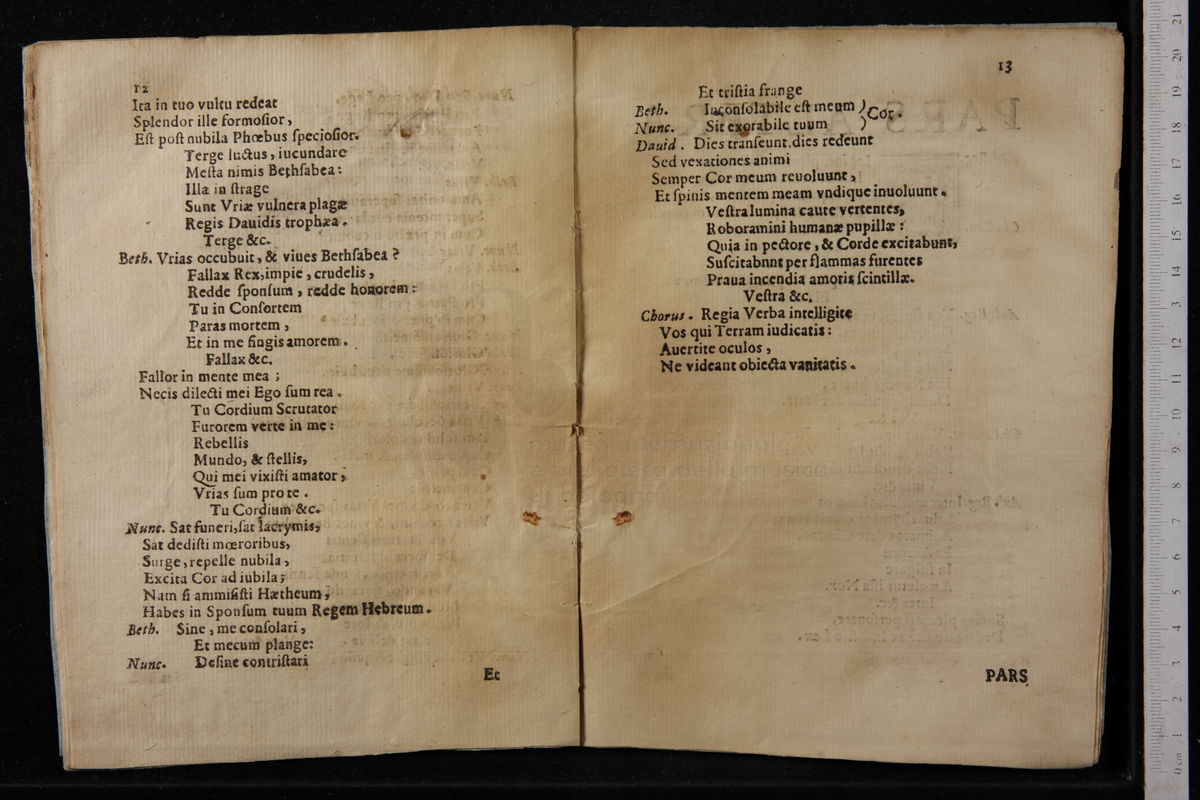 12
Ita in tuo vultu redeat
Splendor ille formoſior,
Eſt poſt nubila Phœbus ſpecioſior.
Terge luctus, iucundare
Meſta nimis Bethſabea:
Illæ in ſtrage
Sunt Vriæ vulnera plagæ
Regis Dauidis trophæa.
Terge &c.
Beth. Vrias occubuit, & viues Bethſabea?
Fallax Rex, impie, crudelis,
Redde ſponſum, redde honorem:
Tu in Conſortem
Paras mortem,
Et in me fingis amorem.
Fallax &c.
Fallor in mente mea;
Necis dilecti mei Ego ſum rea.
Tu Cordium Scrutator
Furorem verte in me:
Rebellis
Mundo, & ſtellis,
Qui mei vixiſti amator,
Vrias ſum pro te.
Tu Cordium &c.
Nunc. Sat funeri, ſat lacrymis,
Sat dediſti mœroribus,
Surge, repelle nubila,
Excita Cor ad iubila;
Nam ſi ammiſiſti Hætheum,
Habes in Sponſum tuum Regem Hebreum.
Beth. Sine, me conſolari,
Et mecum plange:
Nunc. Deſine contriſtari
Et
13
Et triſtia frange
Beth. Inconſolabile eſt meum ) Cor.
Nunc. Sit exorabile tuum )
Dauid. Dies tranſeunt, dies redeunt
Sed vexationes animi
Semper Cor meum reuoluunt,
Et ſpinis mentem meam vndique inuoluunt.
Veſtra lumina caute vertentes,
Roboramini humanæ pupillæ:
Quia in pectore, & Corde excitabunt,
Suſcitabnnt per flammas furentes
Praua incendia amoris ſcintillæ.
Veſtra &c.
Chorus. Regia Verba intelligite
Vos qui Terram iudicatis:
Auertite oculos,
Ne videant obiecta vanitatis.
PARS